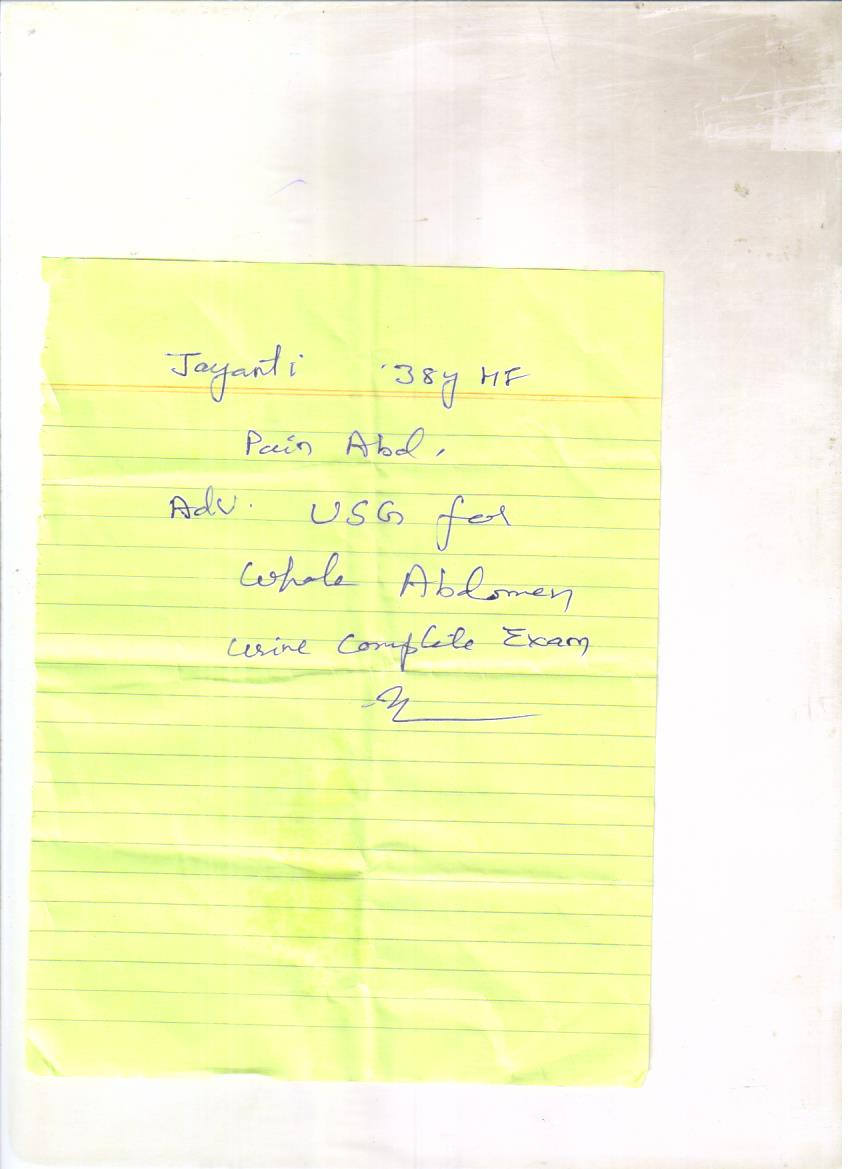 Jayanti 38y HF
Pain Abd.
Adv. USG for
Whole Abdomen
Urine Complete Exam